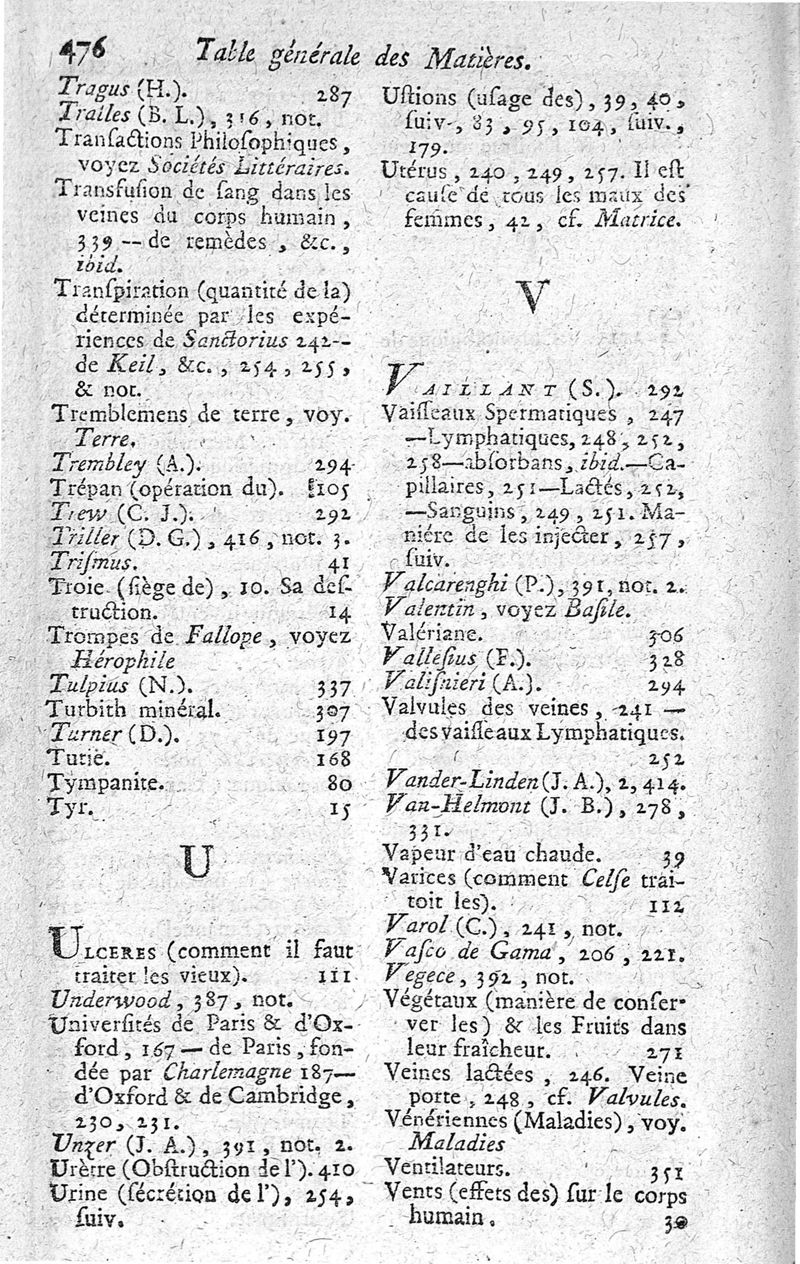 476 Table générale des Matières.
Tragus (H.). 287
Tralles (B. L.), 316, not.
Tranſactions Philoſophiques,
voyez Sociétés Littéraires.
Transfuſion de ſang dans les
veines du corps humain,
339 -- de remèdes, &c.,
ibid.
Tranſpiration (quantité de la)
déterminée par les expé-
riences de Sanctorius 242--
de Keil, &c., 254, 255,
& not.
Tremblemens de terre, voy.
Terre.
Trembley (A.). 294
Trépan (opération du). 105
Trew (C. J.). 292
Triller (D. G.), 416, not. 3.
Triſmus. 41
Troie (ſiège de), 10. Sa deſ-
truction. 14
Trompes de Fallope, voyez
Hérophile
Tulpius (N.). 337
Turbith minéral. 307
Turner (D.). 197
Tutie. 168
Tympanite. 80
Tyr. 15
U
ULCERES (comment il faut
traiter les vieux). 111
Underwood, 387, not.
Univerſités de Paris & d'Ox-
ford, 167 — de Paris, fon-
dée par Charlemagne 187—
d'Oxford & de Cambridge,
230, 231.
Unzer (J. A.), 391, not. 2.
Urètre (Obſtruction de l'). 410
Urine (ſécrétion de l'), 254,
ſuiv.
Uſtions (uſage des), 39, 40,
ſuiv., 83, 95, 104, ſuiv.,
179.
Utérus, 240, 249, 257. Il eſt
cauſe de tous les maux des
femmes, 42, cf. Matrice.
V
VAILLANT (S.). 292
Vaiſſeaux Spermatiques, 247
—Lymphatiques, 248, 252,
258—abſorbans, ibid.—Ca-
pillaires, 251—Lactés, 252,
—Sanguins, 249, 251. Ma-
niére de les injecter, 257,
ſuiv.
Valcarenghi (P.), 391, not. 2.
Valentin, voyez Baſile.
Valériane. 306
Valleſius (F.). 328
Valiſnieri (A.). 294
Valvules des veines, 241 —
des vaiſſeaux Lymphatiques.
252
Vander-Linden (J. A.), 2, 414.
Van-Helmont (J. B.), 278,
331.
Vapeur d'eau chaude. 39
Varices (comment Celſe trai-
toit les). 112
Varol (C.), 241, not.
Vaſco de Gama, 206, 221.
Vegece, 392, not.
Végétaux (manière de conſer-
ver les) & les Fruits dans
leur fraîcheur. 271
Veines lactées, 246. Veine
porte, 248, cf. Valvules.
Vénériennes (Maladies), voy.
Maladies
Ventilateurs. 351
Vents (effets des) ſur le corps
humain. 30